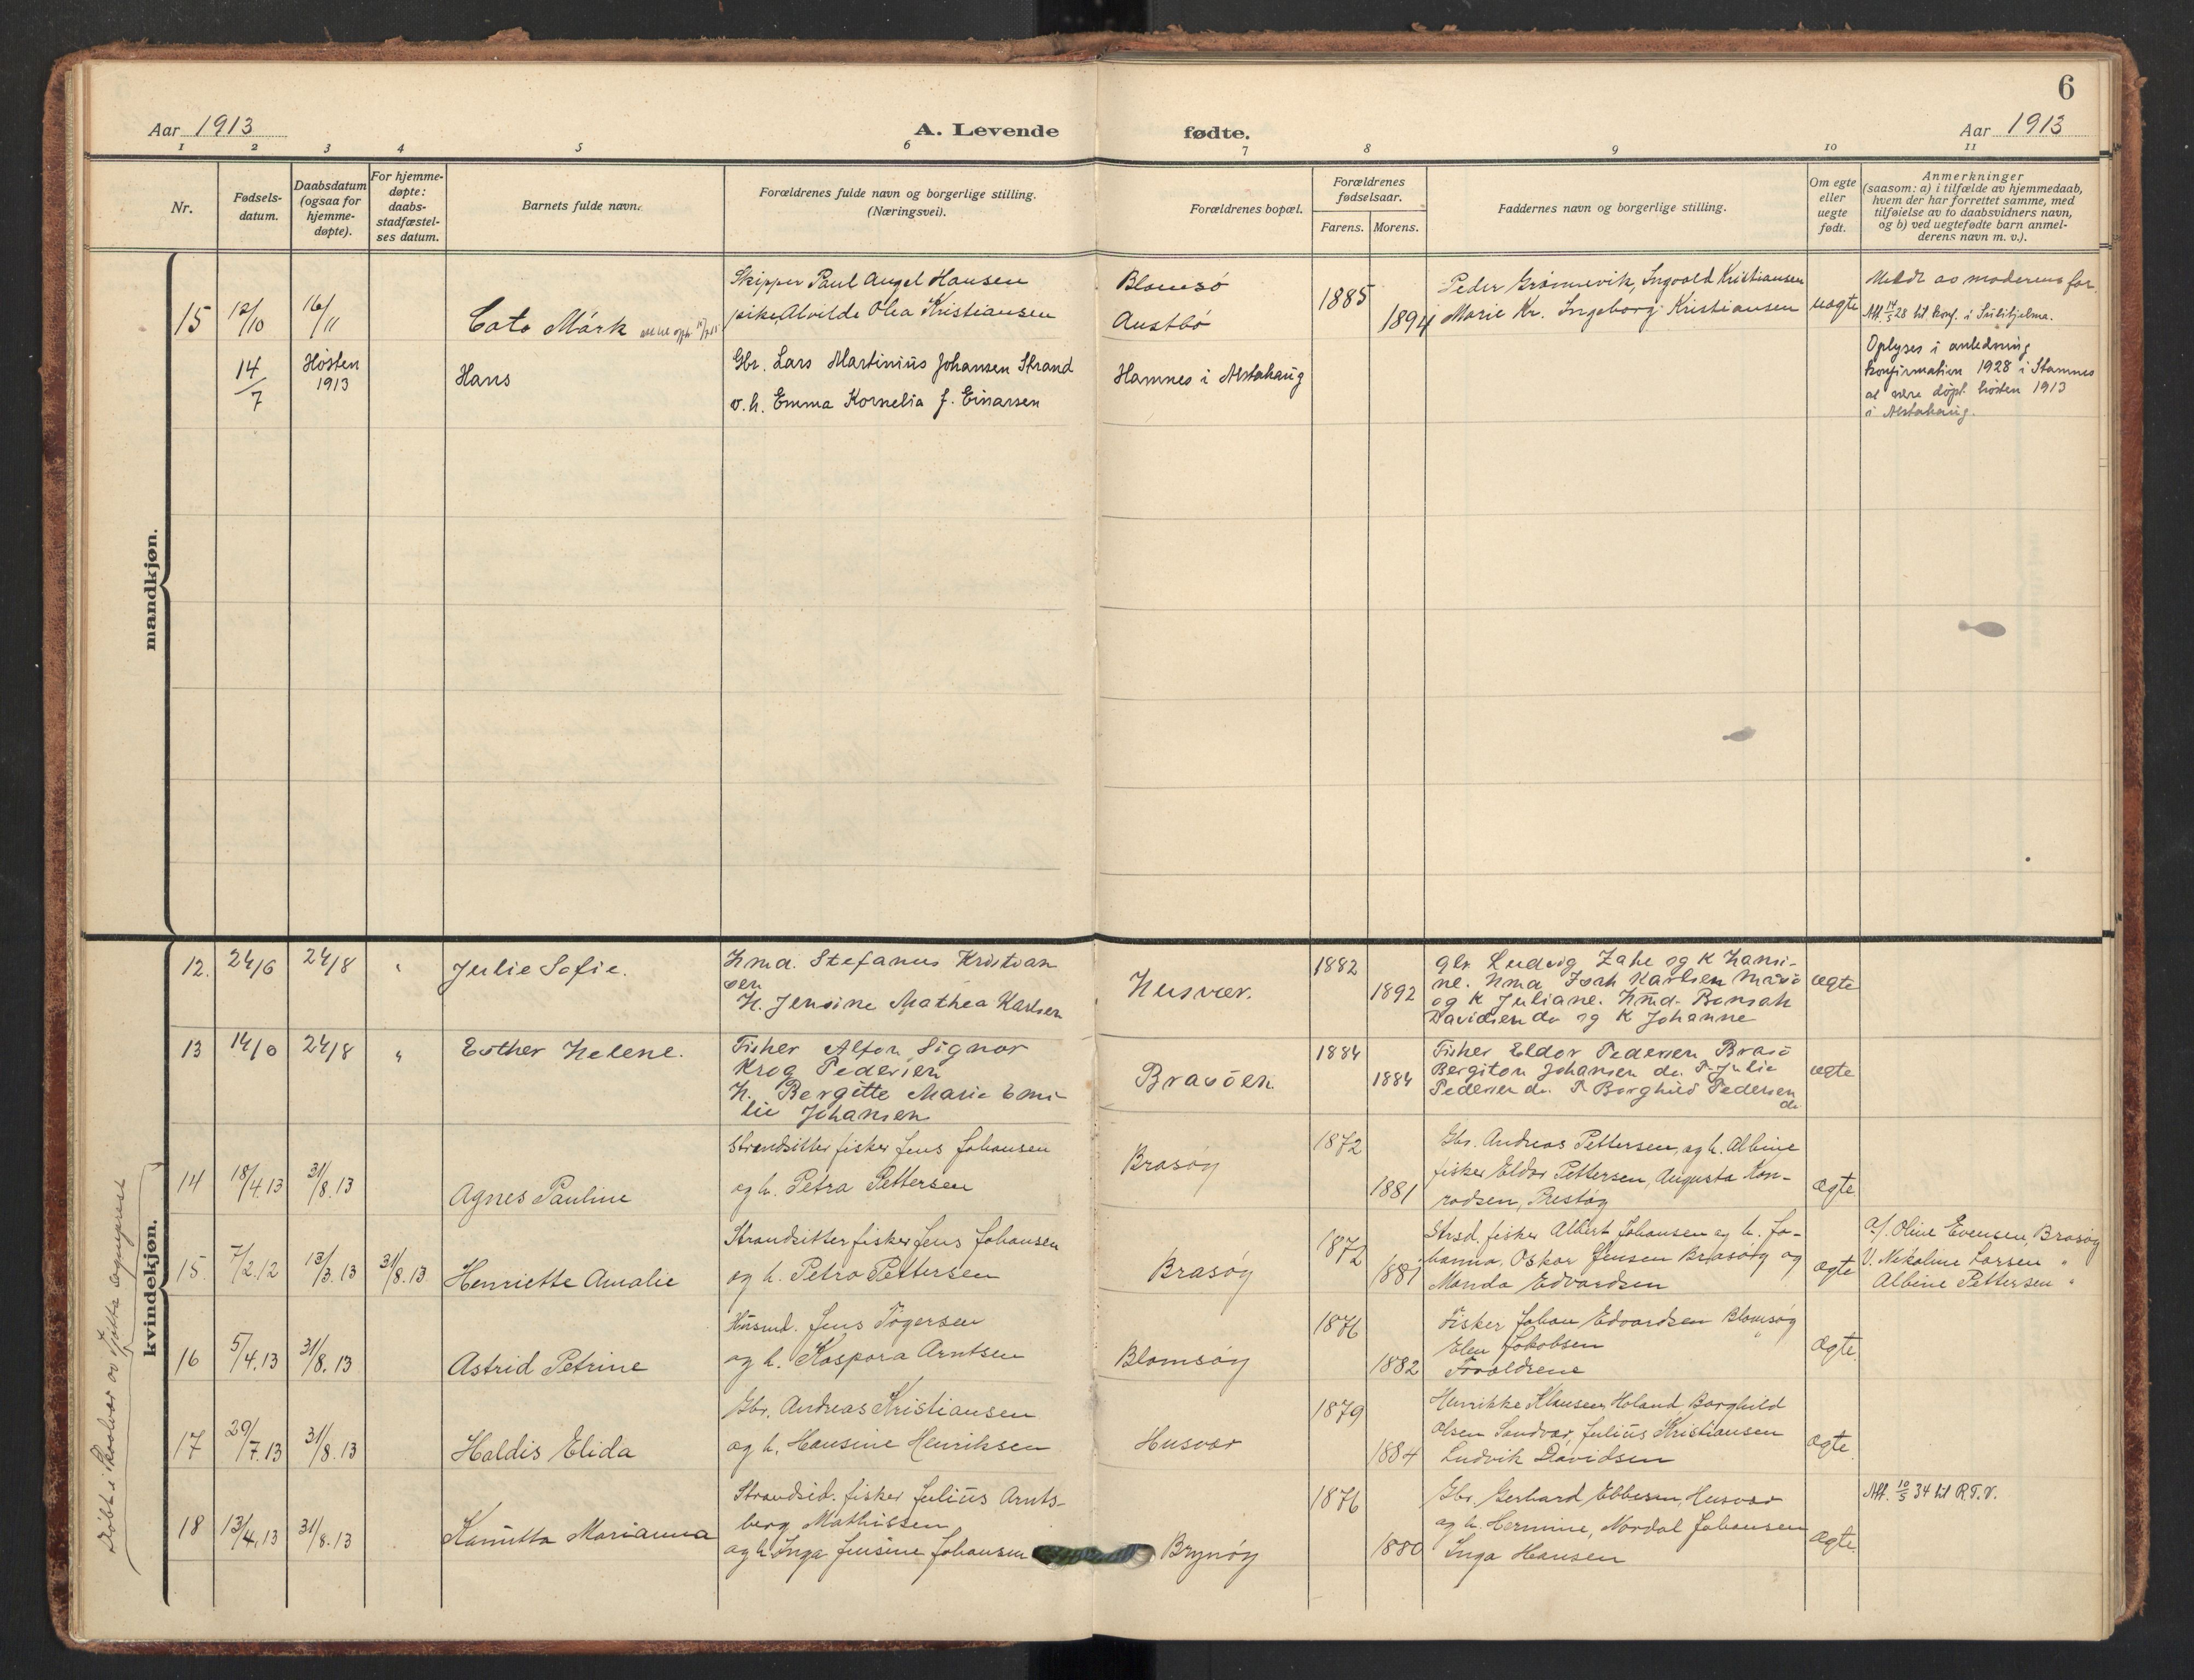 6
Aar 1913
A. Levende fødte.
Aar 1913
1 2 3 4 5 6 7 8 9 10 11
Nr.
Fødsels-
datum.
Daabsdatum
(ogsaa for
hjemme-
døpte).
For hjemme-
døpte:
daabs-
stadfæstel-
ses datum.
Barnets fulde navn.
Forældrenes fulde navn og borgerlige stilling.
(Næringsvei).
Forældrenes bopæl.
Forældrenes
fødselsaar.
Farens. Morens.
Faddernes navn og borgerlige stilling.
Om egte
eller
uegte
født.
Anmerkninger
(saasom: a) i tilfælde av hjemmedaab,
hvem der har forrettet samme, med
tilføielse av to daabsvidners navn,
og b) ved uegtefødte barn anmel-
derens navn m. v.).
mandkjøn.
15 12/10 16/11
Cato Márk
Skipper Paul Angel Hansen
pike Alvilde Olea Kristiansen
Blomsø
Austbø
1885
1894
Peder Grønnevik, Ingvald Kristiansen
Marie Kr. Ingeborg Kristiansen
uegte
Meldt av moderens far.
Att. 14/5 28 til konf. i Sulitjelma.
14/7
Høsten
1913
Hans
Gbr. Lars Martinius Johansen Strand
o. h. Emma Kornelia f. Einarsen
Hamnes i Alstahaug
Oplyses i anledning
konfirmation 1928 i Stamnes
at være døpt høsten 1913
i Alstahaug.
kvindekjøn.
Döbt i Skaalvær av Tjøtta sogneprest
12. 24/6 24/8 "
Julie Sofie.
Hmd. Stefanus Kristian
sen
H. Jensine Mathea Karlsen
Husvær.
1882
1892
gbr. Ludvig Zahl og K Hansi-
ne. Hmd Karlsen
og K Juliane. Hmd.
Davidsen do og K Johanne
ægte
13 14/6 24/8 "
Esther Helene.
Fisker Alfon Signor
Krog Pedersen
H. Bergitte Marie Emi-
lie Johansen
Brasöen
1884
1884
Fisker Eldor Pedersen Brasö
Bergiton Johansen do. P. Julie
Pedersen do. P Borghild Pedersen
do
ægte
14 18/4.13 31/8.13
Agnes Pauline
Strandsitter fisker Jens Johansen
og h. Petra Pettersen
Brasøy
1872
1881
Gbr. Andreas Pettersen, og h. Albine
fisker Eldor Pettersen, Augusta Kon-
radsen, Prestøy
ægte
15. 7/2.12 13/3.13 31/8.13
Henriette Amalie
Strandsitter fisker Jens Johansen
og h. Petra Pettersen
Brasøy
1872
1881
Strsd. fisker Albert Johansen og h. Jo-
hanna, Oskar Jensen Brasøy og
Manda Edvardsen
ægte
a/ Oline Evensen, Brasøy
V. Nikoline Larsen "
Albine Pettersen "
16 5/4.13 31/8.13
Astrid Petrine
Husmd. Jens Tøgersen
og h. Kaspara Arntsen
Blomsøy
1876
1882
Fisker Johan Edvardsen Blomsøy
Elen Jakobsen "
Foraldrene
ægte.
17 29/7.13 31/8.13
Haldis Elida
Gbr. Andreas Kristiansen
og h. Hansine Henriksen
Husvær
1879
1884
Henrikke Klausen, Holand, Borghild
Olsen Sandvær, Julius Kristiansen
Ludvik Davidsen
ægte.
18 13/4.13 31/8.13
Kanutta Marianna
Strandsid. fisker Julius Arnts-
berg Mathissen
og h. Inga Jensine Johansen
Brynøy
1876
1880
Gbr. Gerhard Ebbesen, Husvær
og h. Hermine, Nordal Johansen
Inga Hansen
ægte.
Att. 10/5 34 til R.T.V.